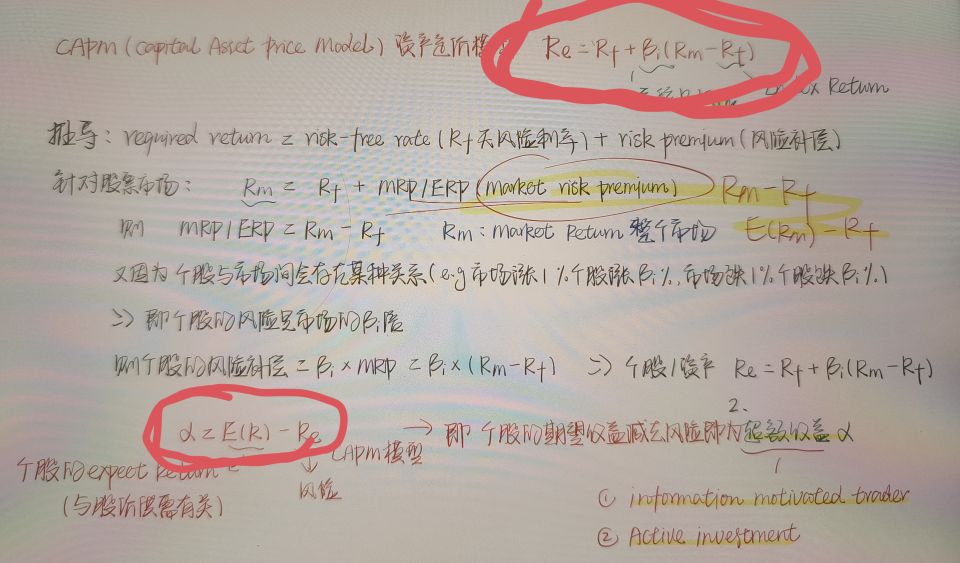 CAPM (capital Asset price Model) 资产定价模 Re = Rf + βi(Rm-Rf)
Return
推导: required return = risk-free rate (Rf 无风险利率) + risk premium (风险补偿)
针对股票市场: Rm = Rf + MRP/ERP (market risk premium) Rm - Rf
则 MRP/ERP = Rm - Rf Rm: Market Return 整个市场 E(Rm) - Rf
又因为个股与市场间会存在某种关系 (e.g 市场涨1%个股涨βi%, 市场跌1%个股跌βi%)
=> 即个股的风险是市场的βi倍
则个股的风险补偿 = βi × MRP = βi × (Rm-Rf) => 个股/资产 Re = Rf + βi(Rm-Rf)
2.
α = E(R) - Re → 即 个股的期望收益减去风险即为超额收益 α
CAPM模型
个股的expect Return ↓ 1
(与股价供需有关) 风险 ① information motivated trader
② Active investment